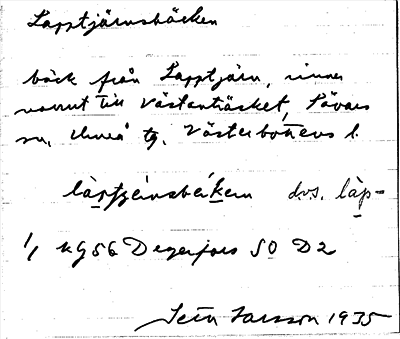 Lapptjärnsbäcken
bäck från Lapptjärn, rinner
norrut till Västanträsket, Sävars
sn, Umeå tg. Västerbottens l.
dvs. lap-
1/1 kg 56 Degerfors SO D2
Sven Larsson 1935